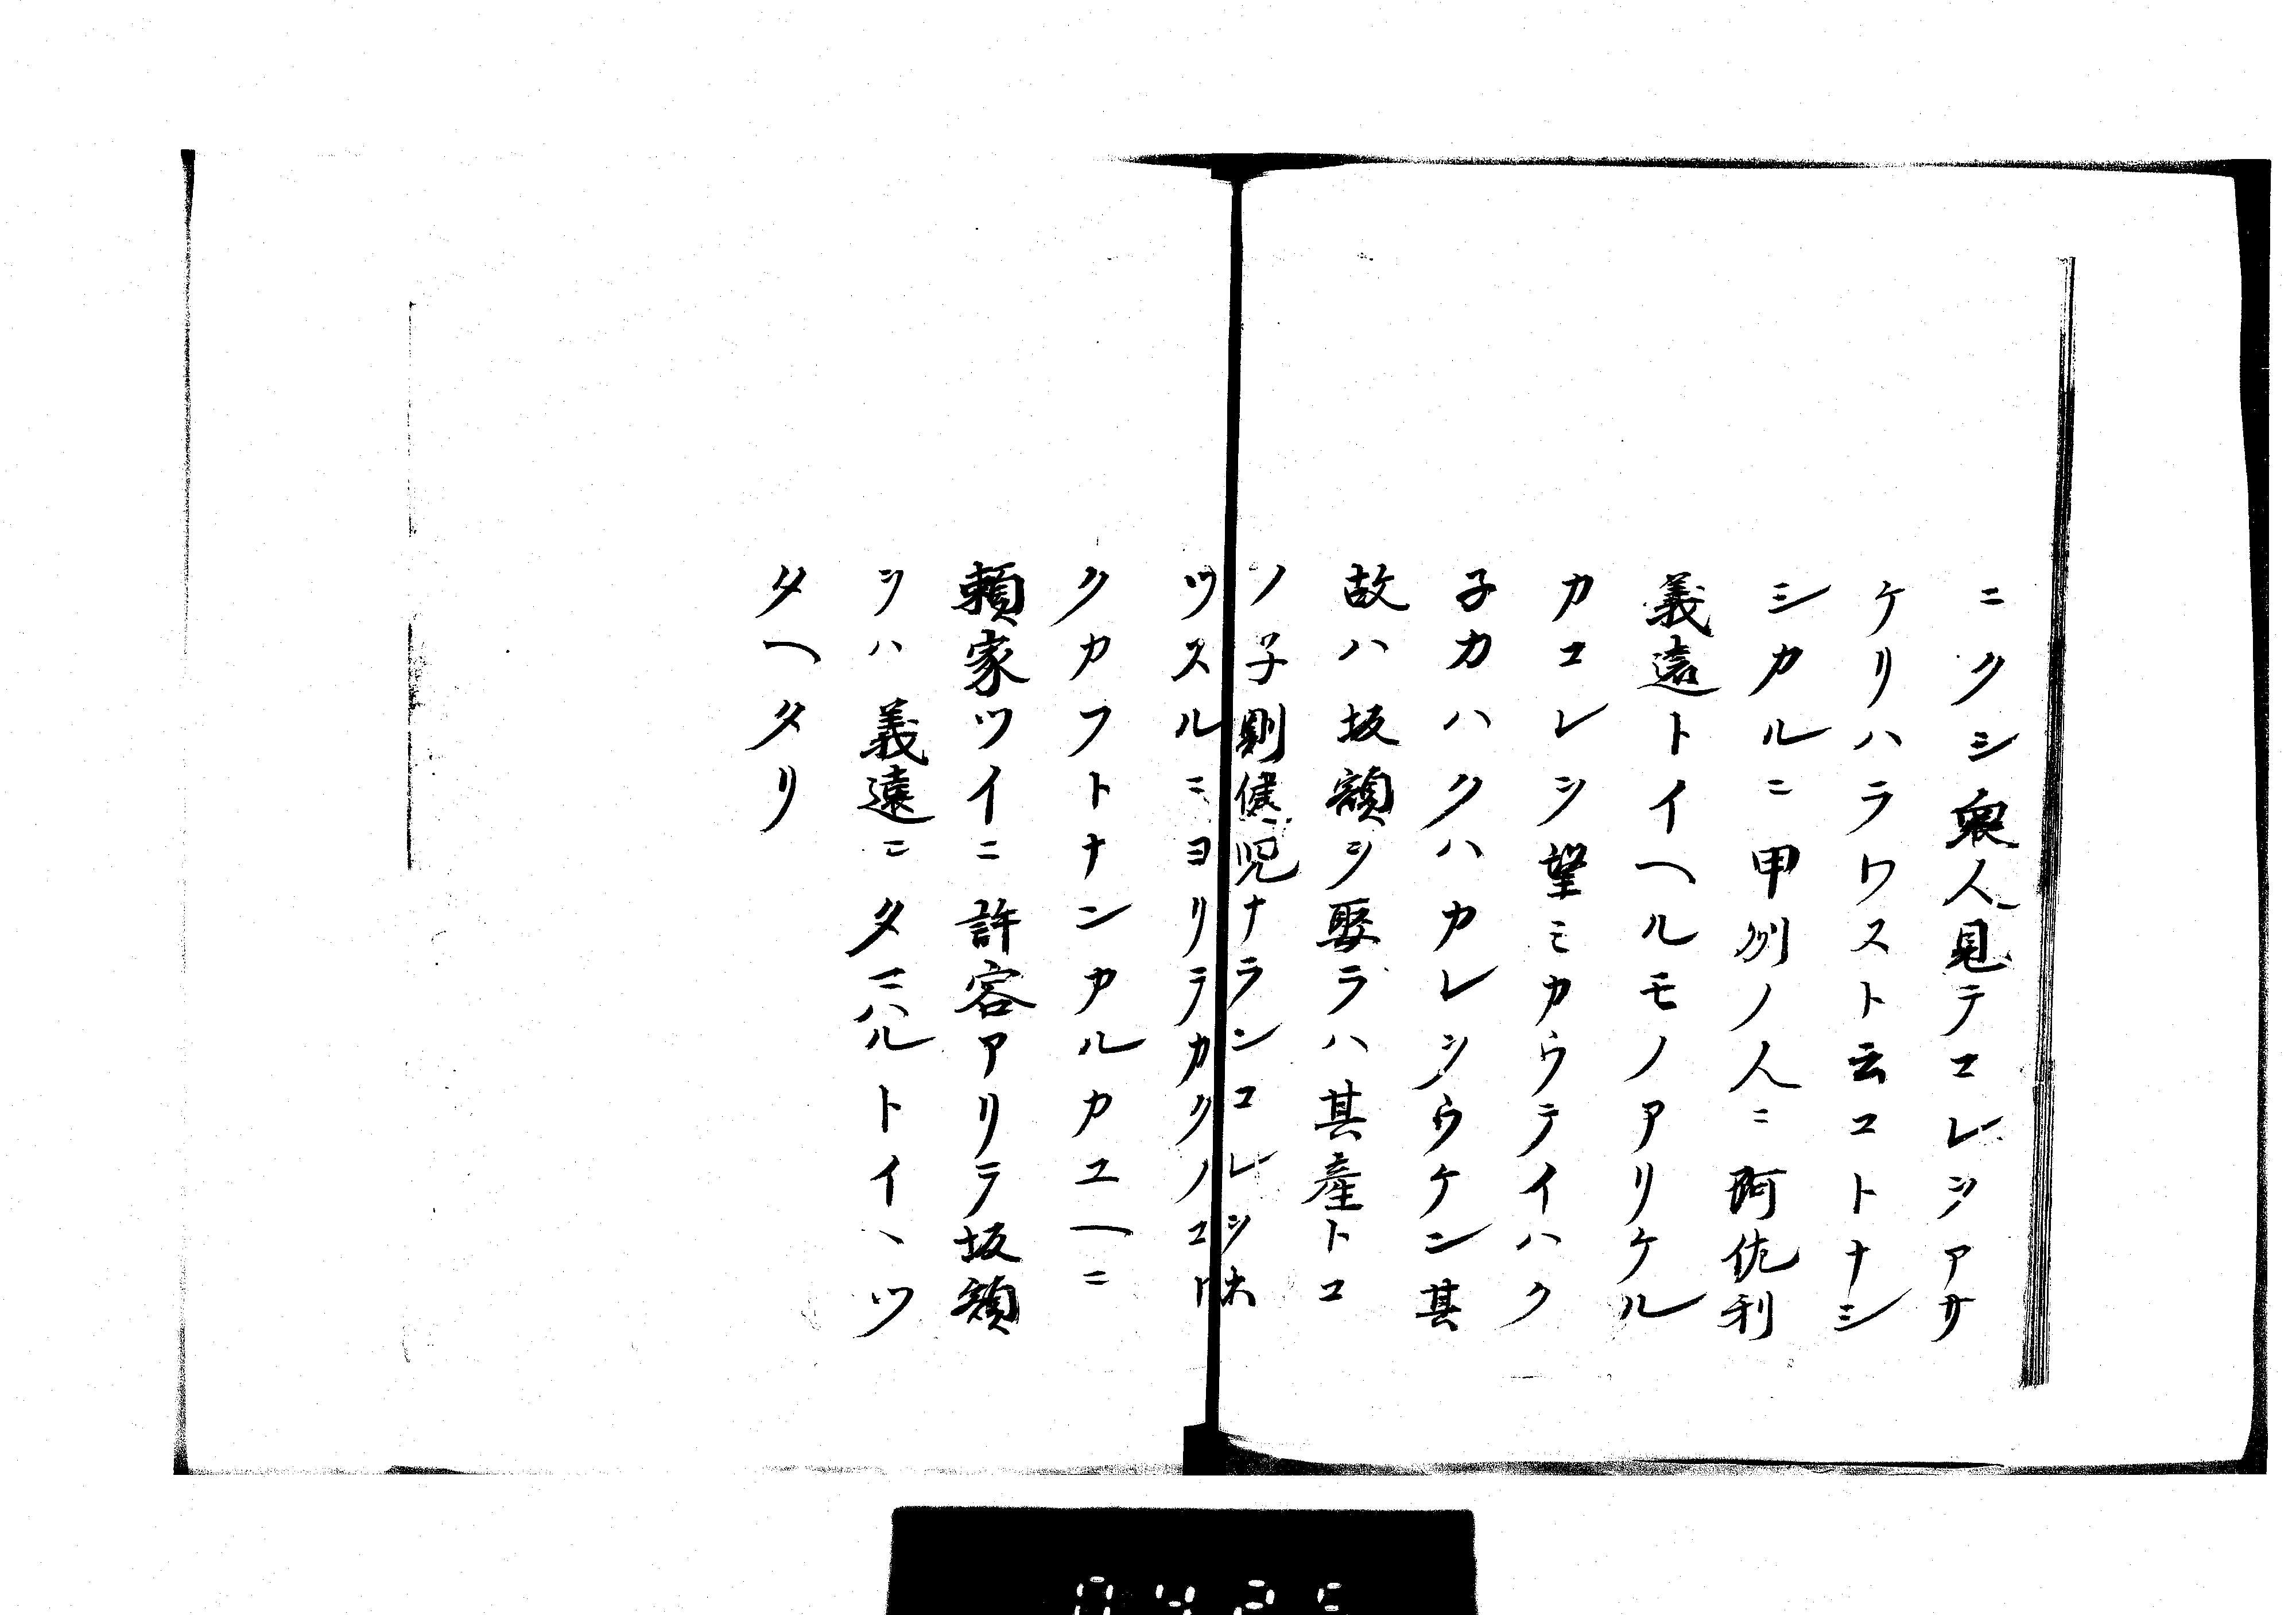 ニクシ衆人見テコレヲアサ
ケリハラワスト云コトナシ
シカルニ甲州ノ人ニ阿佐利
義遠トイヘルモノアリケル
カコレヲ望ミカウテイハク
子カハクハカレヲウケン其
故ハ坂額ヲ娶ラハ其産トコ
ノ子則健児ナランコレヲホ
ツスルニヨリテカクノコト
クカフトナンアルカユヘニ
頼家ツイニ許容アリテ坂額
ヲハ義遠ニタマハルトイヽツ
タヘタリ